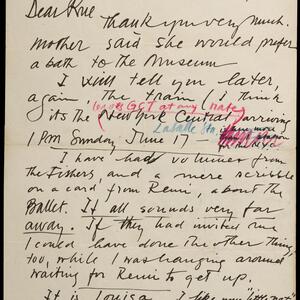 Dear Krue
Thank you very much.
Mother said she would prefer
a bath to the Museum
I will tell you later,
again, the train (I think
leaves GCT at any rate
its the New York Central) arriving
Lasalle Sta.
1 PM Sunday June 17 —
I have had volumes from
the Fishers, and a mere scribble
on a card from Remi, about the
Ballet. It all sounds very far
away. If they had invited me
I could have done the other thing,
too, while I was hanging around
waiting for Remi to get up.
It is Louisa. I like